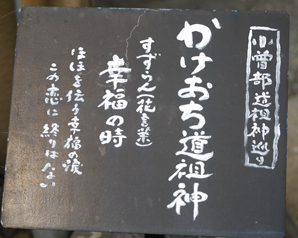 小曽部道祖神巡り
かけおち道祖神
すずらん(花言葉)
幸福の時
ほほを伝う幸福の涙
この恋に終りはない